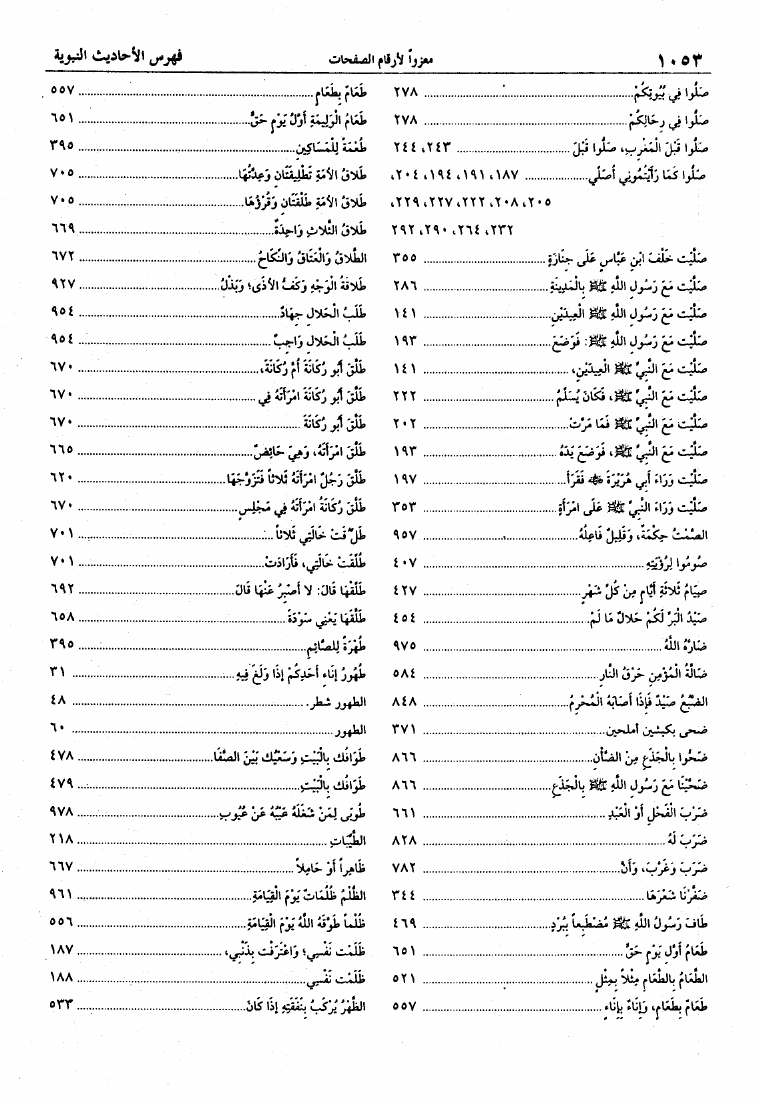 ١٠٥٣ معزواً لأرقام الصفحات فهرس الأحاديث النبوية
صَلُّوا فِي بُيُوتِكُمْ ٢٧٨
صَلُّوا فِي رِحَالِكُمْ ٢٧٨
صَلُّوا قَبْلَ الْمَغْرِبِ، صَلُّوا قَبْلَ ٢٤٣، ٢٤٤
صَلُّوا كَمَا رَأَيْتُمُونِي أُصَلِّي ١٨٧، ١٩١، ١٩٤، ٢٠٤،
٢٠٥، ٢٠٨، ٢٢٢، ٢٢٧، ٢٢٩،
٢٣٢، ٢٦٤، ٢٩٠، ٢٩٢
صَلَّيْت خَلْفَ ابْنِ عَبَّاسٍ عَلَى جِنَازَةٍ ٣٥٥
صَلَّيْت مَعَ رَسُولِ اللَّهِ ﷺ بِالْمَدِينَةِ ٢٨٦
صَلَّيْت مَعَ رَسُولِ اللَّهِ ﷺ الْعِيدَيْنِ ١٤١
صَلَّيْت مَعَ رَسُولِ اللَّهِ ﷺ: فَوَضَعَ ١٩٣
صَلَّيْت مَعَ النَّبِيِّ ﷺ الْعِيدَيْنِ، ١٤١
صَلَّيْت مَعَ النَّبِيِّ ﷺ، فَكَانَ يُسَلِّمُ ٢٢٢
صَلَّيْت مَعَ النَّبِيِّ ﷺ فَمَا مَرَّتْ ٢٠٢
صَلَّيْت مَعَ النَّبِيِّ ﷺ، فَوَضَعَ يَدَهُ ١٩٣
صَلَّيْت وَرَاءَ أَبِي هُرَيْرَةَ ﷺ فَقَرَأَ ١٩٧
صَلَّيْت وَرَاءَ النَّبِيِّ ﷺ عَلَى امْرَأَةٍ ٣٥٣
الصَّمْتُ حِكْمَةٌ، وَقَلِيلٌ فَاعِلُهُ ٩٥٧
صُومُوا لِرُؤْيَتِهِ ٤٠٧
صِيَامُ ثَلاثَةِ أَيَّامٍ مِنْ كُلِّ شَهْرٍ ٤٢٧
صَيْدُ الْبَرِّ لَكُمْ حَلالٌ مَا لَمْ ٤٥٤
ضَارَّهُ اللَّهُ ٩٧٥
ضَالَّةُ الْمُؤْمِنِ حَرْقُ النَّارِ ٥٨٤
الضَّبُعُ صَيْدٌ فَإِذَا أَصَابَهُ الْمُحْرِمُ ٨٤٨
ضحى بكبشين أملحين ٣٧١
ضَحُّوا بِالْجَذَعِ مِنَ الضَّأْنِ ٨٦٦
ضَحَّيْنَا مَعَ رَسُولِ اللَّهِ ﷺ بِالْجَذَعِ ٨٦٦
ضَرْبَ الْفَحْلِ أَوْ الْعَبْدِ ٦٦١
ضَرَبَ لَهُ ٨٢٨
ضَرَبَ وَغَرَّبَ، وَأَنَّ ٧٨٢
ضَفَرْنَا شَعْرَهَا ٣٤٤
طَافَ رَسُولُ اللَّهِ ﷺ مُضْطَبِعاً بِبُرْدٍ ٤٦٩
طَعَامُ أَوَّلِ يَوْمٍ حَقٌّ ٦٥١
الطَّعَامُ بِالطَّعَامِ مِثْلاً بِمِثْلٍ ٥٢١
طَعَامٌ بِطَعَامٍ، وَإِنَاءٌ بِإِنَاءٍ ٥٥٧
طَعَامٌ بِطَعَامٍ ٥٥٧
طَعَامُ الْوَلِيمَةِ أَوَّلُ يَوْمٍ حَقٌّ ٦٥١
طُعْمَةً لِلْمَسَاكِينِ ٣٩٥
طَلاقُ الأَمَةِ تَطْلِيقَتَانِ وَعِدَّتُهَا ٧٠٥
طَلاقُ الأَمَةِ طَلْقَتَانِ وَقُرْؤُهَا ٧٠٥
طَلاقُ الثَّلاثِ وَاحِدَةٌ ٦٦٩
الطَّلاقُ وَالْعَتَاقُ وَالنِّكَاحُ ٦٧٢
طَلاقَةُ الْوَجْهِ وَكَفُّ الأَذَى؛ وَبَذْلُ ٩٢٧
طَلَبُ الْحَلالِ جِهَادٌ ٩٥٤
طَلَبُ الْحَلالِ وَاجِبٌ ٩٥٤
طَلَّقَ أَبُو رُكَانَةَ أُمَّ رُكَانَةَ، ٦٧٠
طَلَّقَ أَبُو رُكَانَةَ امْرَأَتَهُ فِي ٦٧٠
طَلَّقَ أَبُو رُكَانَةَ ٦٧٠
طَلَّقَ امْرَأَتَهُ، وَهِيَ حَائِضٌ ٦٦٥
طَلَّقَ رَجُلٌ امْرَأَتَهُ ثَلاثاً فَتَزَوَّجَهَا ٦٢٠
طَلَّقَ رُكَانَةُ امْرَأَتَهُ فِي مَجْلِسٍ ٦٧٠
طَلُّقَتْ خَالَتِي ثَلاثاً ٧٠١
طُلِّقَتْ خَالَتِي، فَأَرَادَتْ ٧٠١
طَلِّقْهَا قَالَ: لا أَصْبِرُ عَنْهَا قَالَ ٦٩٢
طَلَّقَهَا يَعْنِي سَوْدَةَ ٦٥٨
طُهْرَةً لِلصَّائِمِ ٣٩٥
طُهُورُ إِنَاءِ أَحَدِكُمْ إِذَا وَلَغَ فِيهِ ٣١
الطهور شطر ٤٨
الطهور ٦٠
طَوَافُك بِالْبَيْتِ وَسَعْيُك بَيْنَ الصَّفَا ٤٧٨
طَوَافُك بِالْبَيْتِ ٤٧٩
طُوبَى لِمَنْ شَغَلَهُ عَيْبُهُ عَنْ عُيُوبِ ٩٧٨
الطَّيِّبَاتِ ٢١٨
ظَاهِراً أَوْ حَامِلاً ٦٦٧
الظُّلْمُ ظُلُمَاتٌ يَوْمَ الْقِيَامَةِ ٩٦١
ظُلْماً طَوَّقَهُ اللَّهُ يَوْمَ الْقِيَامَةِ ٥٥٦
ظَلَمْت نَفْسِي؛ وَاعْتَرَفْت بِذَنْبِي، ١٨٧
ظَلَمْت نَفْسِي ١٨٨
الظَّهْرُ يُرْكَبُ بِنَفَقَتِهِ إِذَا كَانَ ٥٣٣